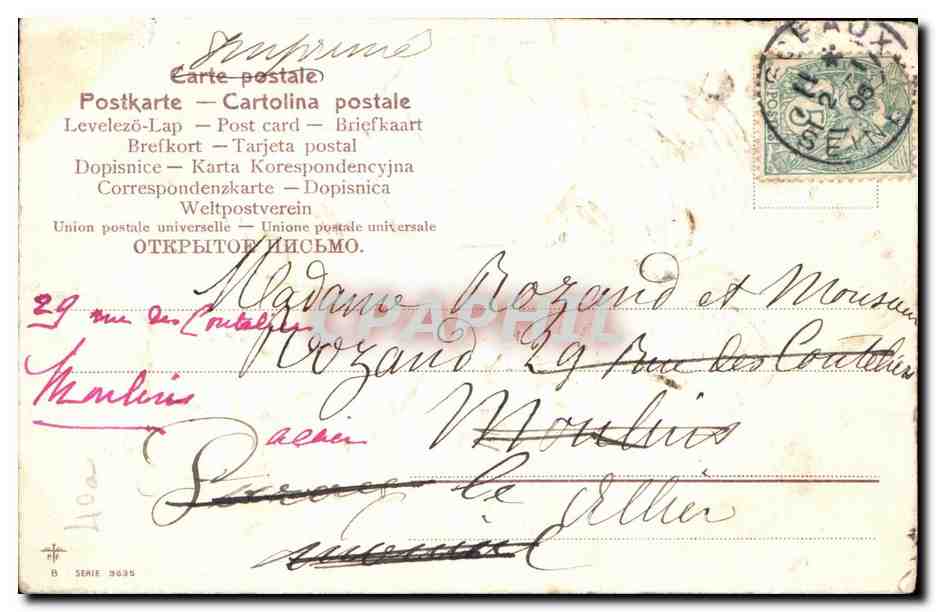 Imprimé
Carte postale
Postkarte — Cartolina postale
Levelezö-Lap — Post card — Briefkaart
Brefkort — Tarjeta postal
Dopisnice — Karta Korespondencyjna
Correspondenzkarte — Dopisnica
Weltpostverein
Union postale universelle — Unione postale universale
ОТКРЫТОЕ ПИСЬМО.
SCEAUX
SEINE
CPAPHIL
Madame Rozand et Monsieur
Rozand 29 Rue des Couteliers
Moulins
Allier
29 rue des Couteliers
Moulins
Allier
Paray le
Monial
40a
B SERIE 3635